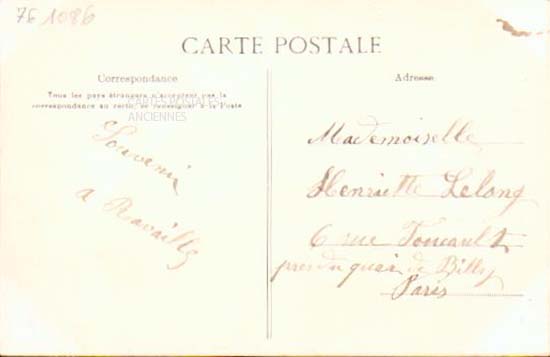 76 1086
CARTE POSTALE
Correspondance
Tous les pays étrangers n'acceptent pas la
correspondance au recto, se renseigner à la Poste
CARTES POSTALES
ANCIENNES
Souvenir
a
Adresse
Mademoiselle
Henriette Lelong
6 rue Foucault
près du quai de Billy
Paris